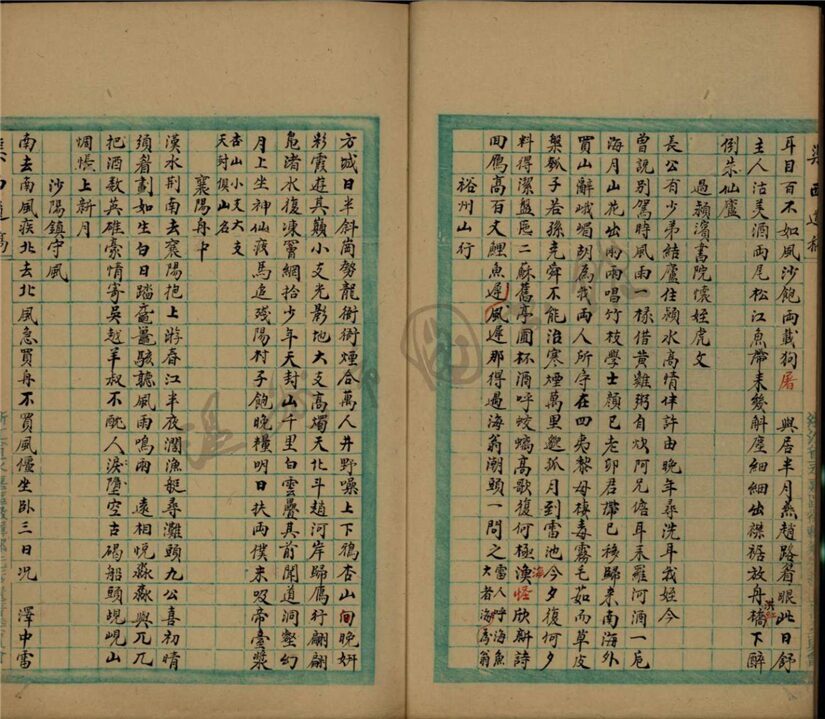 耳目百不如風沙飽兩載狗屠 與居半月燕趙路看眼此日舒
主人沽美酒兩尾松江魚帶來幾斛塵細細出襟裾放舟橋下醉
倒朱仙廬
過潁濱書院懷姪虎文
長公有少弟結廬住潁水高情伴許由晚年尋洗耳我姪今
曾說別駕時風雨一樣借黃雞粥自炊阿兄儋耳禾羅河酒一卮
海月山花出兩兩唱竹枝學士顏已老卯君帶已移歸來南海外
買山辭峨嵋胡爲我兩人所奇在四夷黎母棲毒霧毛茹而草皮
槃瓠子若孫堯舜不能治寒煙萬里磴孤月到雷池今夕復何夕
料得潔盤匜二蘇舊亭圃杯酒呼蛟螭高歌復何極漁怪欣群詩
回鴈高百丈鯉魚遲風遲那得過海翁潮頭一問之雷人呼海魚大者海爲翁
裕州山行
方城日半斜崗勢龍衙衙煙合萬人井野噪上下鴉杏山旬晚妍
彩霞遊其巔小支光影地大支高燭天北斗趙河岸歸鴈行翩翩
鳧渚水復凍罾網拾少年天封山千里白雲疊其前聞道洞壑幻
月上坐神仙疲馬追殘陽村子飽晚糧明日扶兩僕來吸帝臺漿
杏山小支大支天封俱山名
襄陽舟中
漢水荆南去襄陽抱上游春江半夜濶漁艇尋灘頭九公喜初晴
鬚眷劃如生白日踏黿鼉駭聽風雨鳴兩 遠相悅淼淼與兀兀
把酒教英雄豪情寄吳越羊叔不酖人淚墮空古碣船頭峴峴山
惆悵上新月
沙陽鎮守風
南去南風疾北去北風急買舟不買風僵坐臥三日況 澤中雷